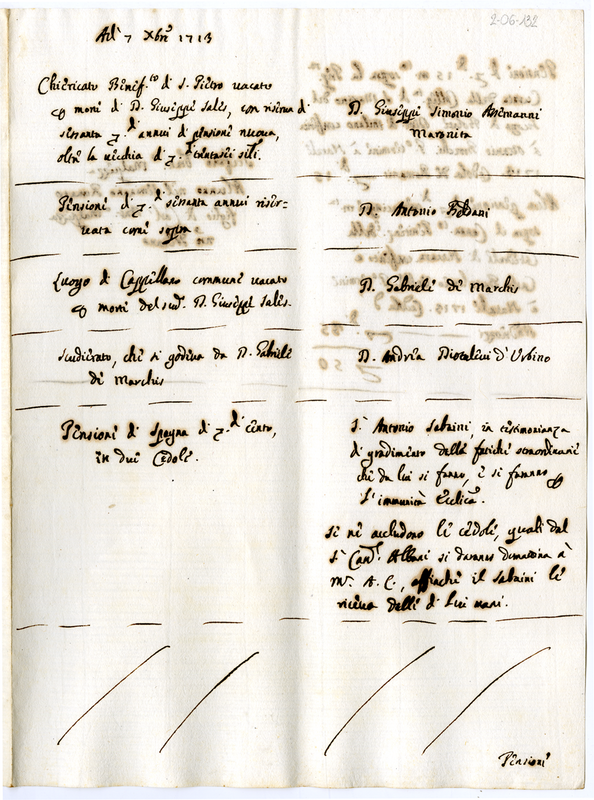 2-06-132
Adì 7 Xbre 1713
Chiericato Benef.to di S. Pietro vacato
morte di D. Giuseppe Sales, con riserva di
sessanta annui di pensione nuova,
oltre la vecchia di trentasei sili.
D. Giuseppe Simonio Assemanni
Maronita
Pensione di sessanta annui riser-
vata come sopra
D. Antonio
Luogo di Cappellano comune vacato
morte del sud. D. Giuseppe Sales.
D. Gabriele de Marchis
Scudierato, che si godeva da D. Gabriele
de Marchis
D. Andrea d'Urbino
Pensione di Spagna di cento,
in due Cedole.
S.r Antonio Sabaini, in testimonianza
di gradimento delle fatiche straordinarie
che da lui si fanno, e si faranno
l'immunità Ecclica.
Si ne accludono le cedole, quali dal
S.r Can.co Albani si daranno domattina à
M.r A. C., affinché il Sabaini le
riceva dalle di lui mani.
Pensione